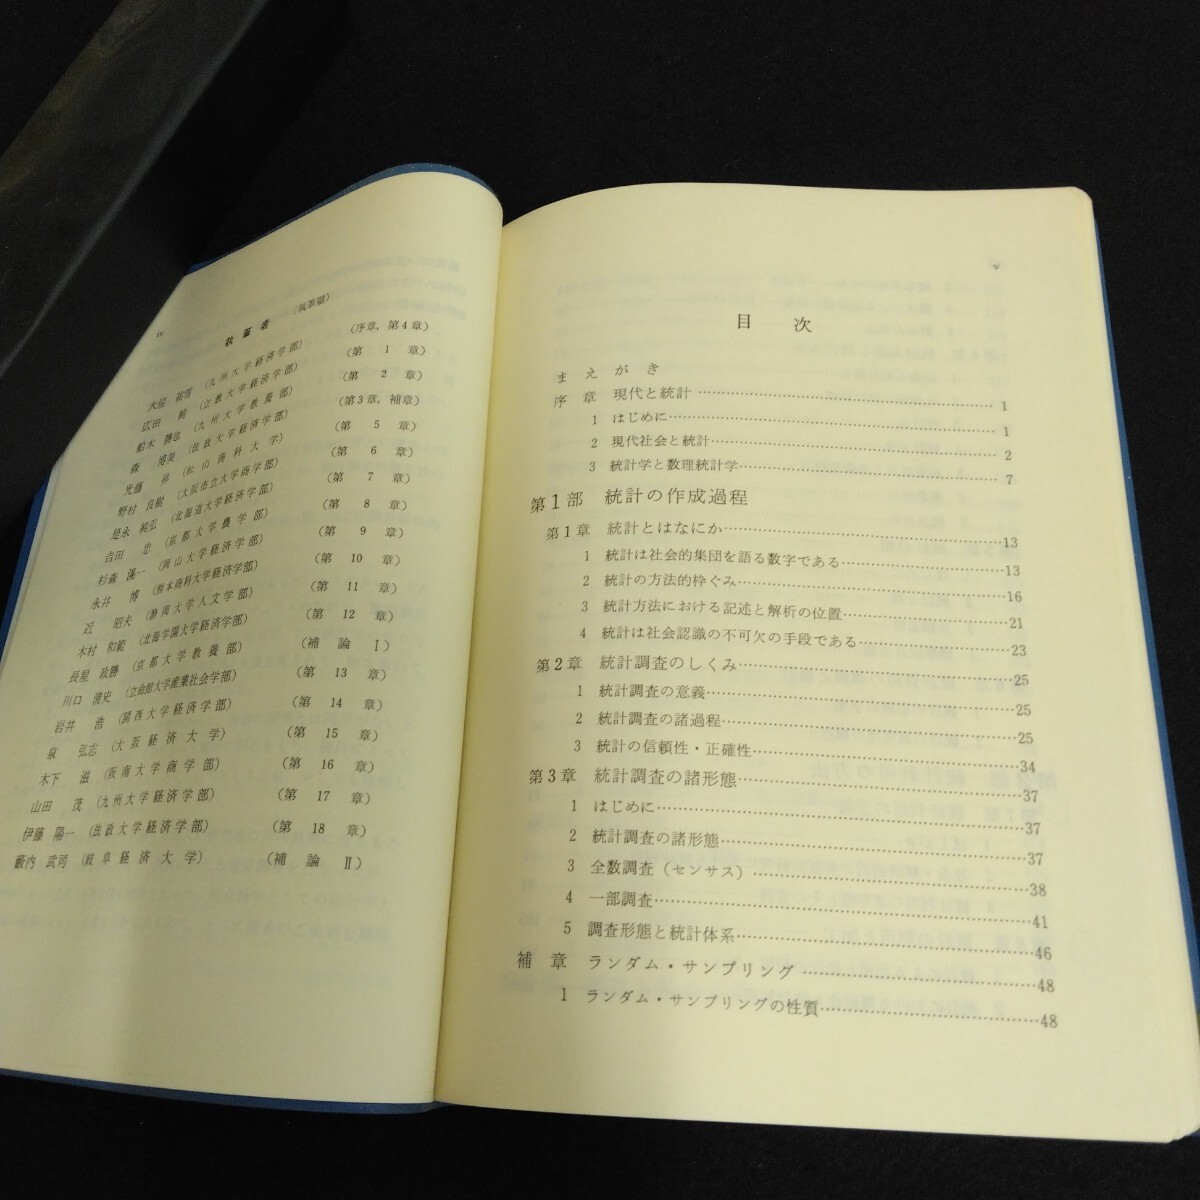 iv
執筆者 (執筆順)
大屋 祐雪 (九州大学経済学部) (序章, 第4章)
広田 純 (立教大学経済学部) (第 1 章)
船木 勝也 (九州大学教養部) (第 2 章)
森 博美 (法政大学経済学部) (第3章, 補章)
光藤 昇 (松山商科大学) (第 5 章)
野村 良樹 (大阪市立大学商学部) (第 6 章)
是永 純弘 (北海道大学経済学部) (第 7 章)
吉田 忠 (京都大学農学部) (第 8 章)
杉森 滉一 (岡山大学経済学部) (第 9 章)
永井 博 (熊本商科大学経済学部) (第 10 章)
近 昭夫 (静岡大学人文学部) (第 11 章)
木村 和範 (北海学園大学経済学部) (第 12 章)
長屋 政勝 (京都大学教養部) (補論 I)
川口 清史 (立命館大学産業社会学部) (第 13 章)
岩井 浩 (関西大学経済学部) (第 14 章)
泉 弘志 (大阪経済大学) (第 15 章)
木下 滋 (阪南大学商学部) (第 16 章)
山田 茂 (九州大学経済学部) (第 17 章)
伊藤 陽一 (法政大学経済学部) (第 18 章)
藪内 武司 (岐阜経済大学) (補論 II)
v
目 次
まえがき
序 章 現代と統計 …… 1
1 はじめに …… 1
2 現代社会と統計 …… 2
3 統計学と数理統計学 …… 7
第1部 統計の作成過程
第1章 統計とはなにか …… 13
1 統計は社会的集団を語る数字である …… 13
2 統計の方法的枠ぐみ …… 16
3 統計方法における記述と解析の位置 …… 21
4 統計は社会認識の不可欠の手段である …… 23
第2章 統計調査のしくみ …… 25
1 統計調査の意義 …… 25
2 統計調査の諸過程 …… 25
3 統計の信頼性・正確性 …… 34
第3章 統計調査の諸形態 …… 37
1 はじめに …… 37
2 統計調査の諸形態 …… 37
3 全数調査(センサス) …… 38
4 一部調査 …… 41
5 調査形態と統計体系 …… 46
補 章 ランダム・サンプリング …… 48
1 ランダム・サンプリングの性質 …… 48